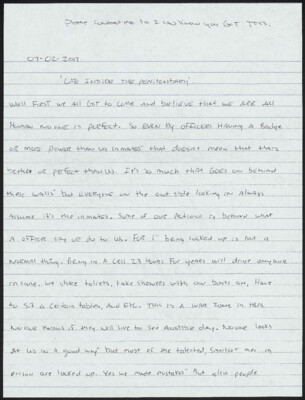 Please contact me so I will know you got this.
07-02-2017
"Life Inside The Penitentiary"
Well first we all got to come and believe that we are all
human no one is perfect. So even by officers having a badge
or more power than us inmates that doesn't mean that there
better or perfect than us. It's so much that goes on behind
these walls but everyone on the out side looking in always
assume it's the inmates. Some of our actions is behind what
a officer say or do to us. For i' being locked up is not a
normal thing. Being in a cell 23 hours for years will drive anyone
insane. We share toilets, take showers with our boxers on, have
to sit a certain tables, and etc. This is a war zone in here
no one knows if they will live to see another day. No one looks
at us in a good way but most of the talented, smartest men in
prison are locked up. Yes we made mistakes but give people